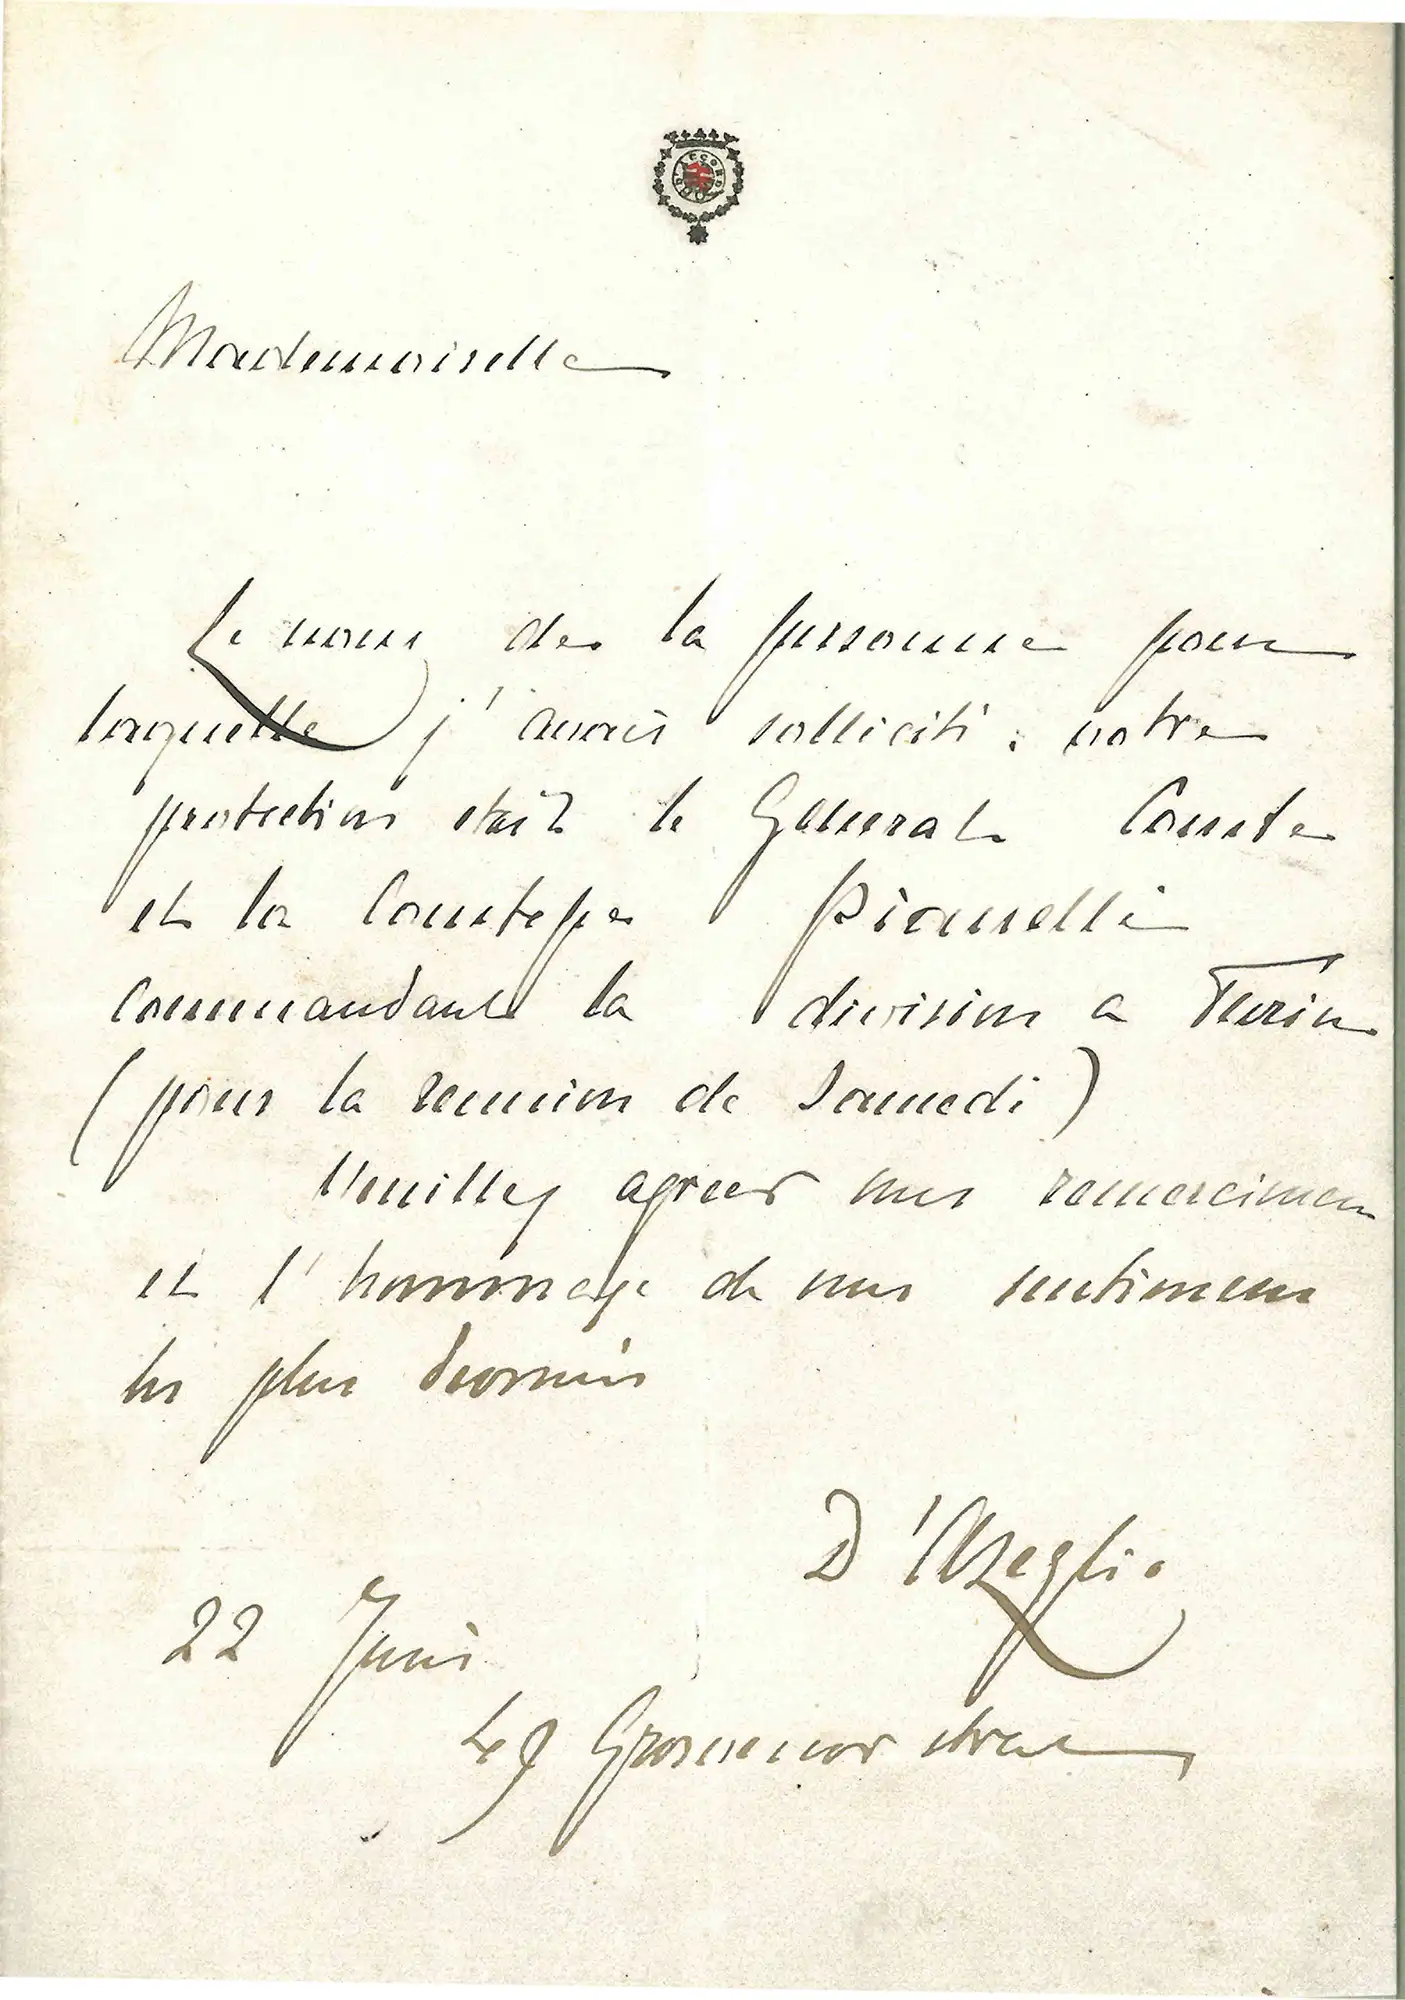 Mademoiselle
Le nom de la personne pour
laquelle j'avais sollicité votre
protection était le General Comte
et la Comtesse Pianelli
commandant la division a Turin
(pour la reunion de Samedi)
Veuillez agreer mes remercimens
et l'hommage de mes sentimens
les plus
D'Azeglio
22 Juin
49 Grosvenor street